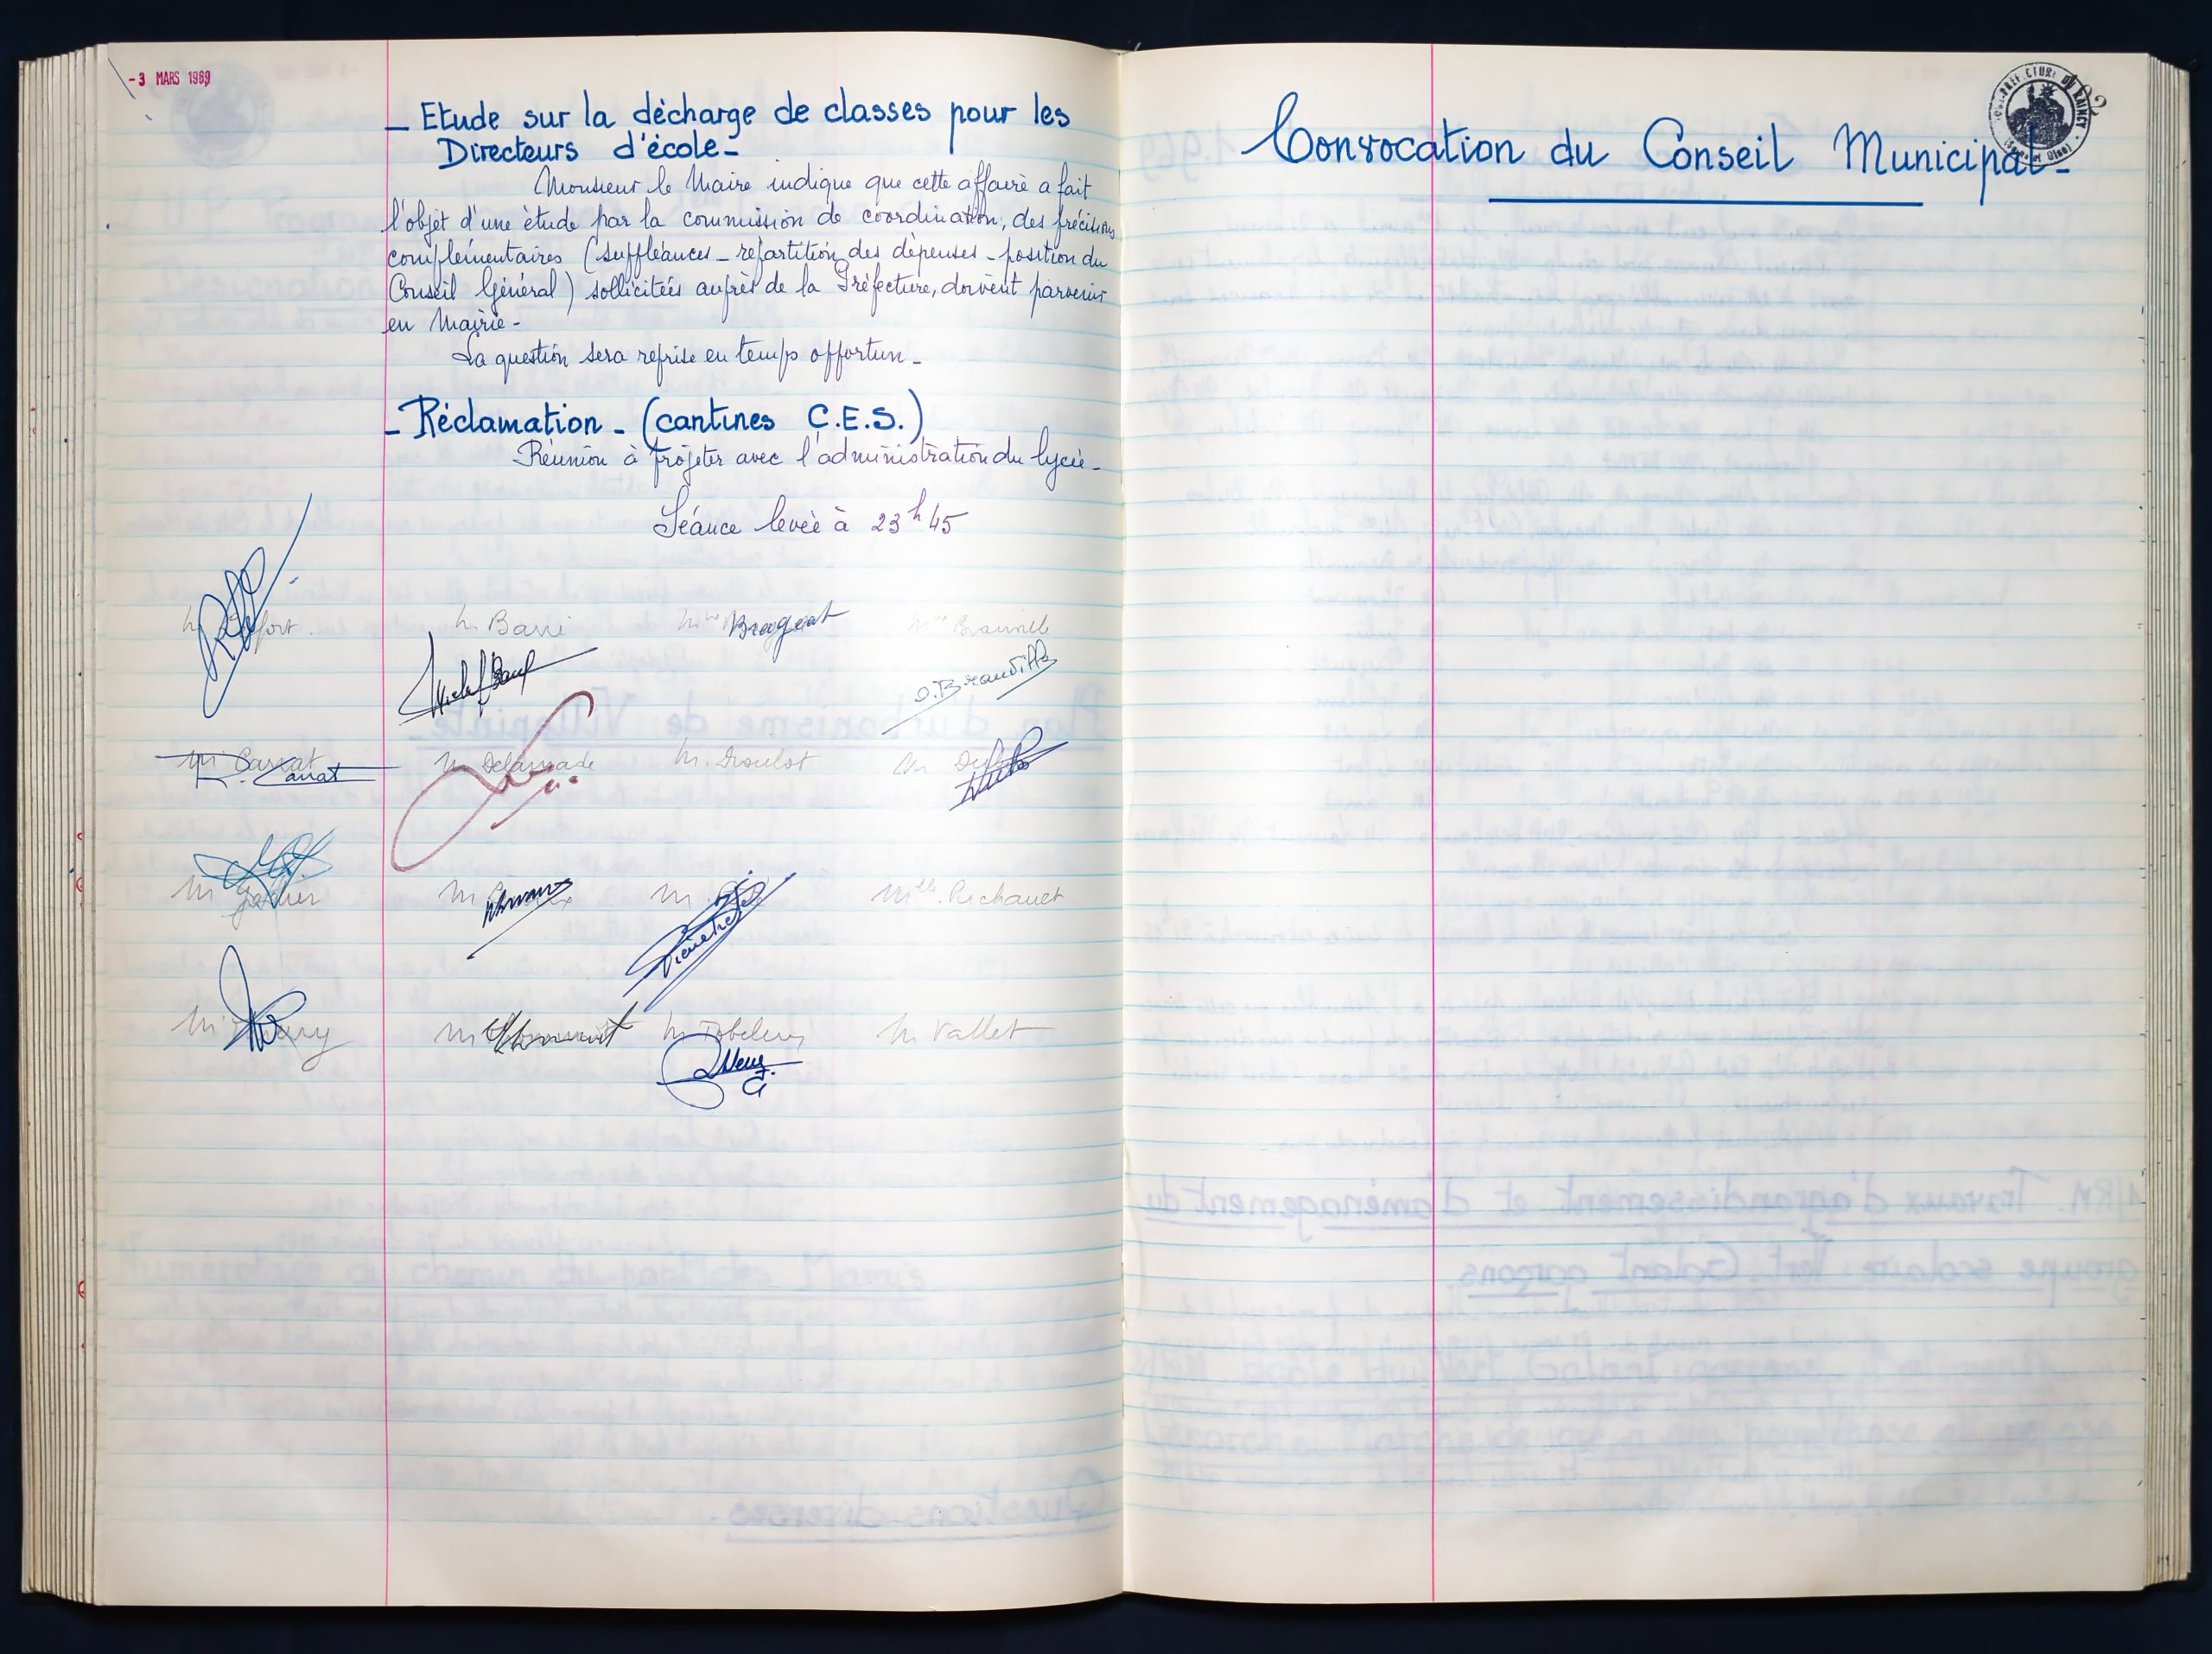 -3 MARS 1969
_ Etude sur la décharge de classes pour les
Directeurs d'école_
Monsieur le Maire indique que cette affaire a fait
l'objet d'une étude par la commission de coordination, des précisions
complémentaires (suppléances_ repartition des dépenses - position du
Conseil Général) sollicitées auprès de la Préfecture, doivent parvenir
en Mairie-
La question sera reprise en temps opportun_
_ Réclamation _ (cantines C.E.S.)
Réunion à projeter avec l'administration du lycée_
Séance levée à 23 h 45
M. Barri Brageat
O. Brauville
M. Carrat M. Delarnade M. Droulot
Carrat
M. Mlle. Pichauet
M. M. M. Tobelem M. Vallet
Convocation du Conseil Municipal_